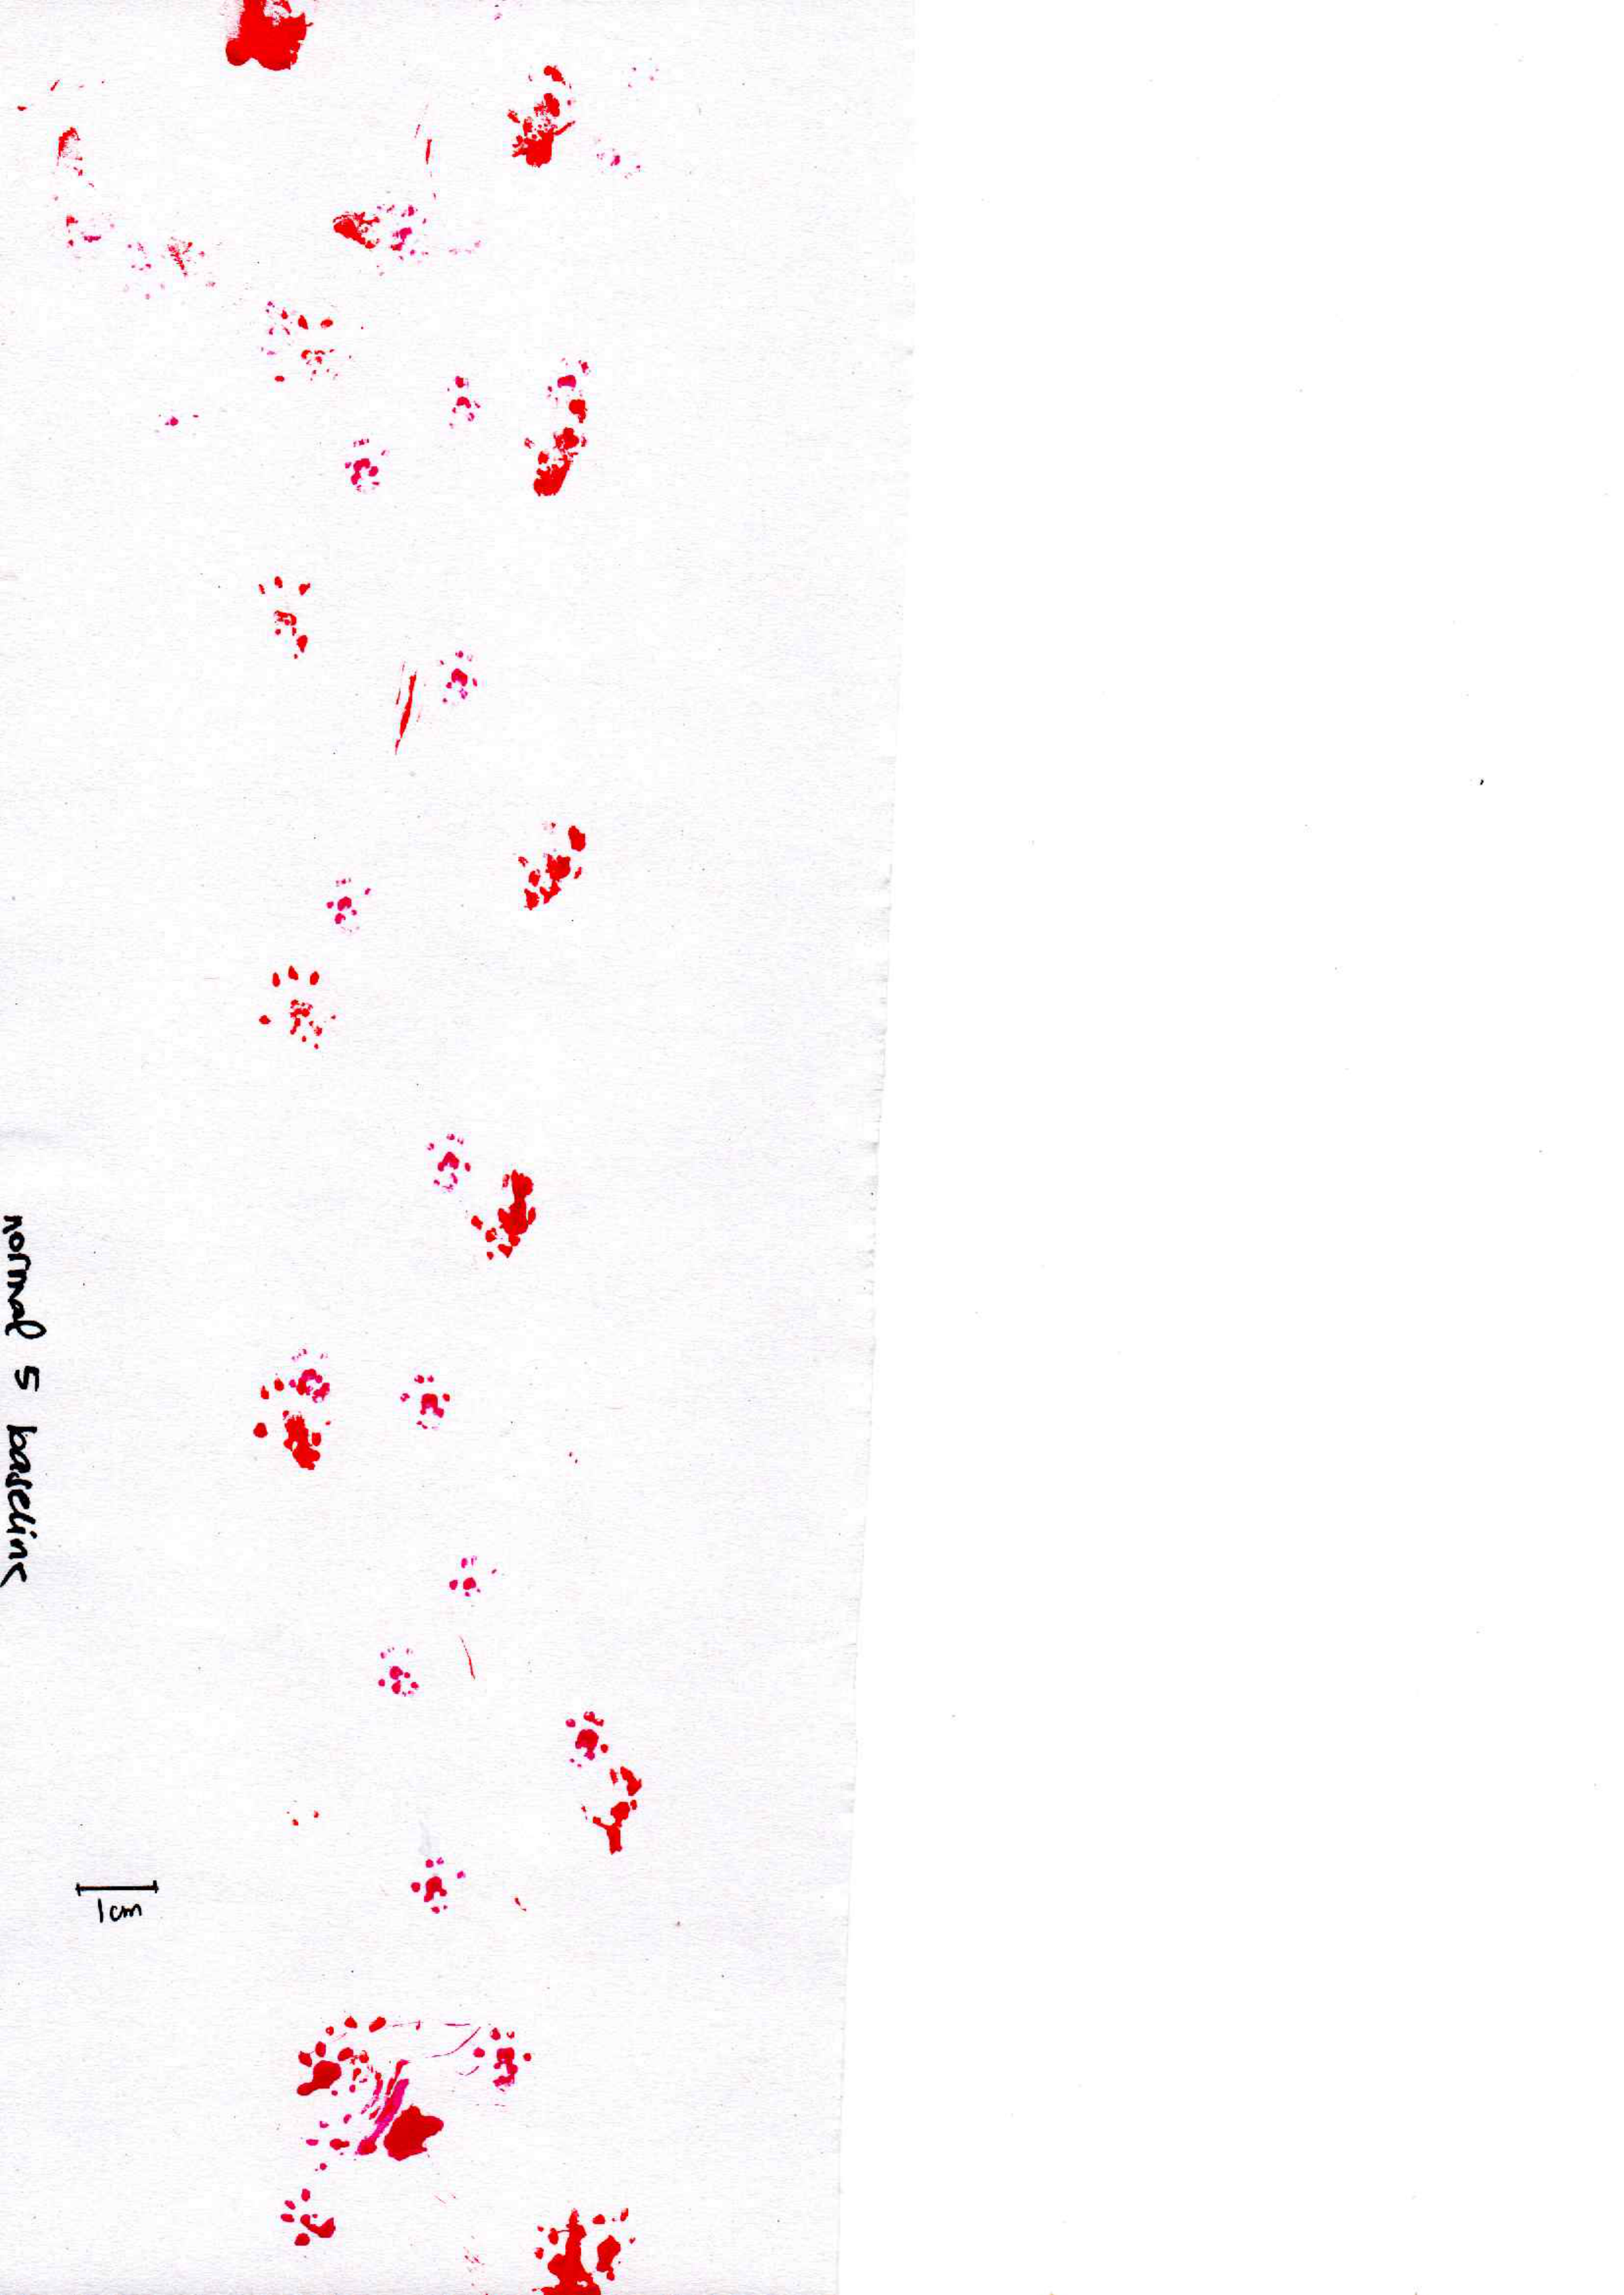 normal 5 baseline
1cm